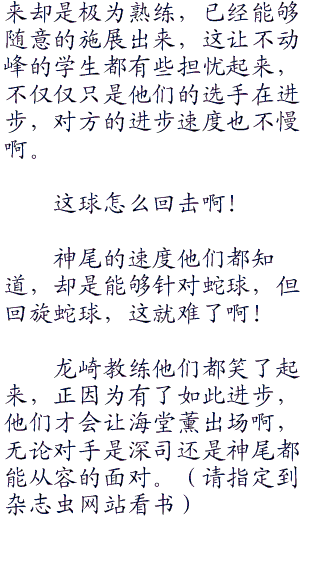 来却是极为熟练，已经能够
随意的施展出来，这让不动
峰的学生都有些担忧起来，
不仅仅只是他们的选手在进
步，对方的进步速度也不慢
啊。
这球怎么回击啊！
神尾的速度他们都知
道，却是能够针对蛇球，但
回旋蛇球，这就难了啊！
龙崎教练他们都笑了起
来，正因为有了如此进步，
他们才会让海堂薰出场啊，
无论对手是深司还是神尾都
能从容的面对。（请指定到
杂志虫网站看书）